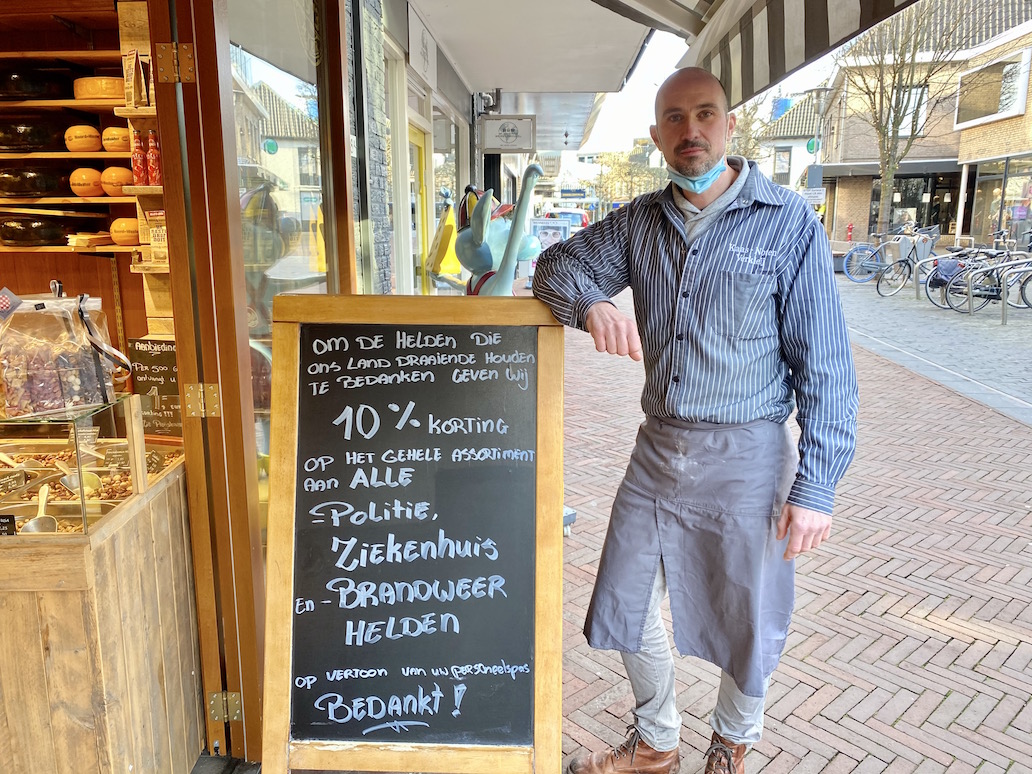 OM DE HELDEN DIE
ONS LAND DRAAIENDE HOUDEN
TE BEDANKEN GEVEN WIJ
10% KORTING
OP HET GEHELE ASSORTIMENT
AAN ALLE
- POLITIE,
ZIEKENHUIS
EN - BRANDWEER
HELDEN
OP VERTOON VAN UW PERSONEELSPAS
BEDANKT!
Kaas-Noten
Aanbieding